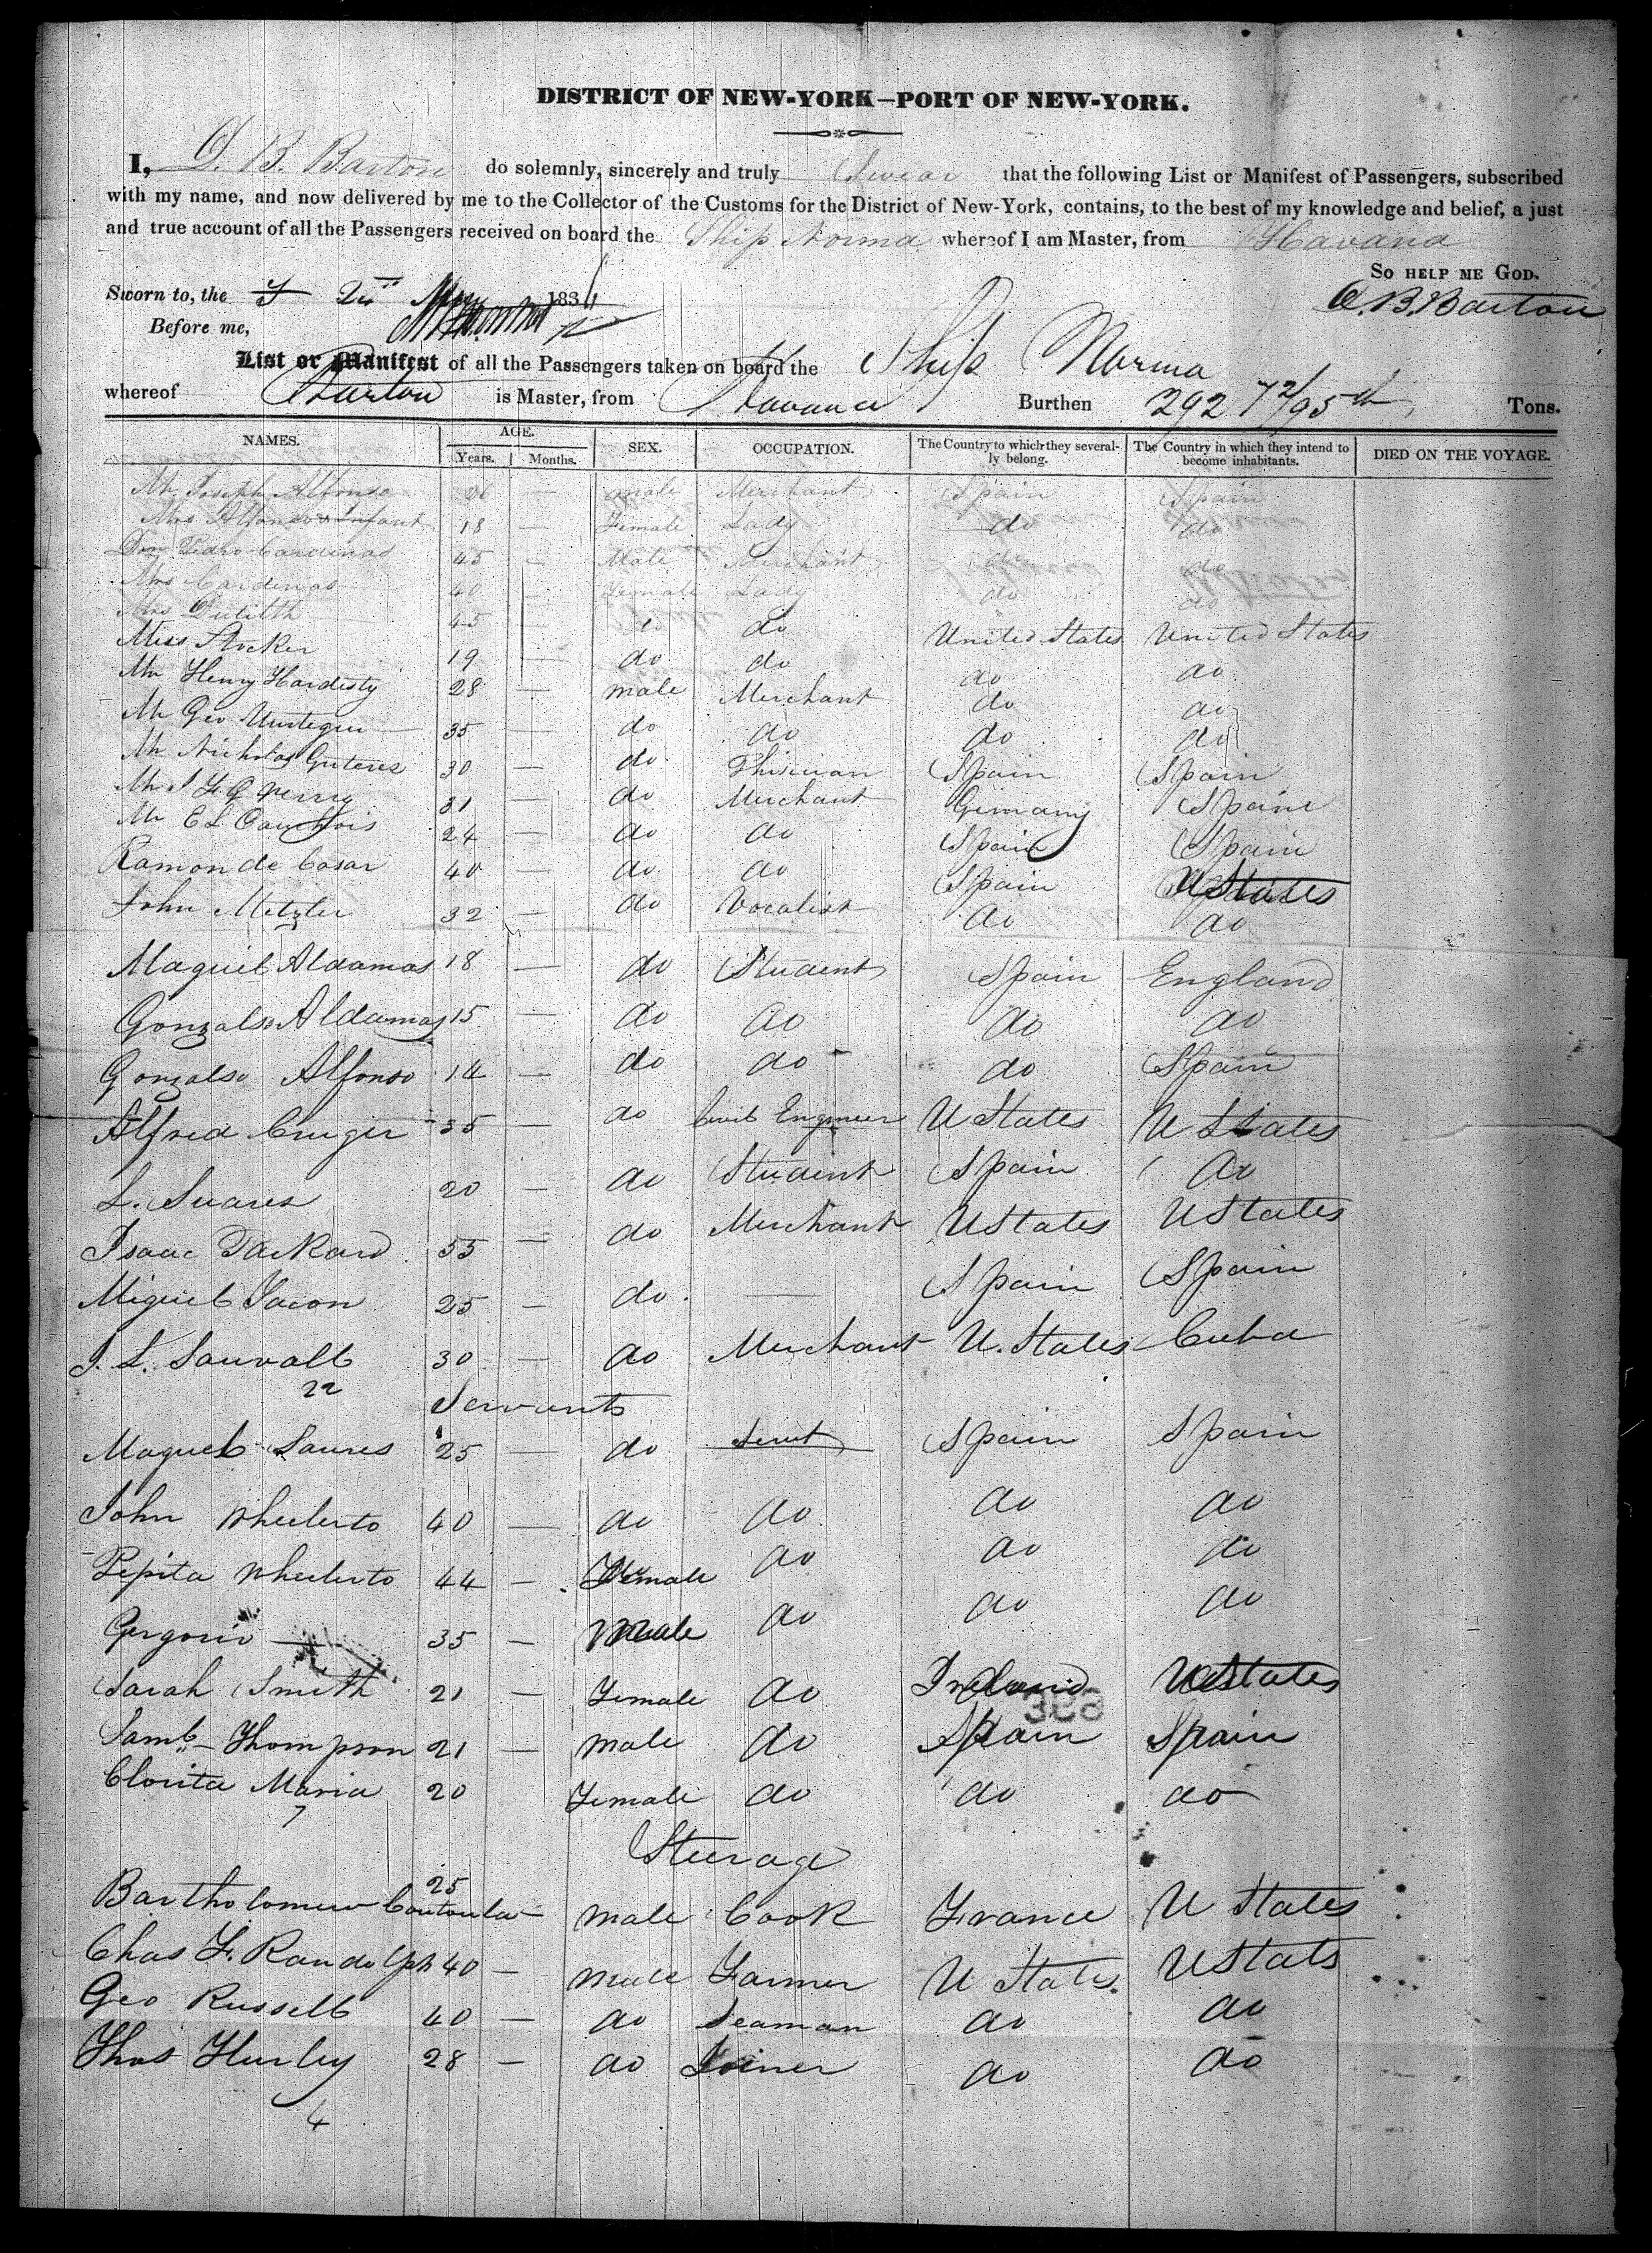 DISTRICT OF NEW-YORK—PORT OF NEW-YORK.
I, D. B. Barton do solemnly, sincerely and truly Swear that the following List or Manifest of Passengers, subscribed
with my name, and now delivered by me to the Collector of the Customs for the District of New-York, contains, to the best of my knowledge and belief, a just
and true account of all the Passengers received on board the Ship Norma whereof I am Master, from Havana
SO HELP ME GOD.
Sworn to, the 24 May 183
D. B. Barton
Before me,
List or Manifest of all the Passengers taken on board the Ship Norma
whereof Barton is Master, from Havana Burthen 292 72/95th Tons.
NAMES. AGE. Years. Months. SEX. OCCUPATION. The Country to which they severally belong. The Country in which they intend to become inhabitants. DIED ON THE VOYAGE.
Mr Joseph Alfonso 26 — male Merchant Spain Spain
Mrs Alfonso & Infant 18 — Female Lady do do
Don Pedro Cardenas 45 — Male Merchant do do
Mrs Cardenas 40 — Female Lady do do
Mrs 45 do do United States United States
Miss Stocker 19 — do do do do
Mr Henry Hardesty 28 — male Merchant do do
Mr Geo 35 — do do do do
Mr Nicholas Guteres 30 — do Phisician Spain Spain
Mr 31 — do Merchant Germany Spain
Mr E L 24 — do do Spain Spain
Ramon de Casar 40 — do do Spain U States
John Metzler 32 — do Vocalist do do
Maguel Aldamas 18 — do Student Spain England
Gonzalso Aldamas 15 — do do do do
Gonzalso Alfonso 14 — do do do Spain
Alfred Cruger 35 — do Civil Engineer U States U States
L. Suares 20 — do Student Spain do
Isaac Packard 55 — do Merchant U States U States
Miguel Tacon 25 — do — Spain Spain
J. L. Sauvall 30 — do Merchant U. States Cuba
22
Servants
Maguel Saures 25 — do Servt Spain Spain
John 40 — do do do do
Pepita 44 — Female do do do
Gergorio — 35 — Male do do do
Sarah Smith 21 — Female do Ireland U States
Saml Thompson 21 — male do Spain Spain
Clorita Maria 20 Female do do do
7
Steerage
Bartholomew 25 — male Cook France U States
Chas F. Randolph 40 — male Farmer U States U Stats
Geo Russell 40 — do Seaman do do
Thos Hurley 28 — do Joiner do do
4